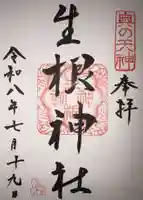 奥の天神
奉拝
生根神社
令和八年七月十九日